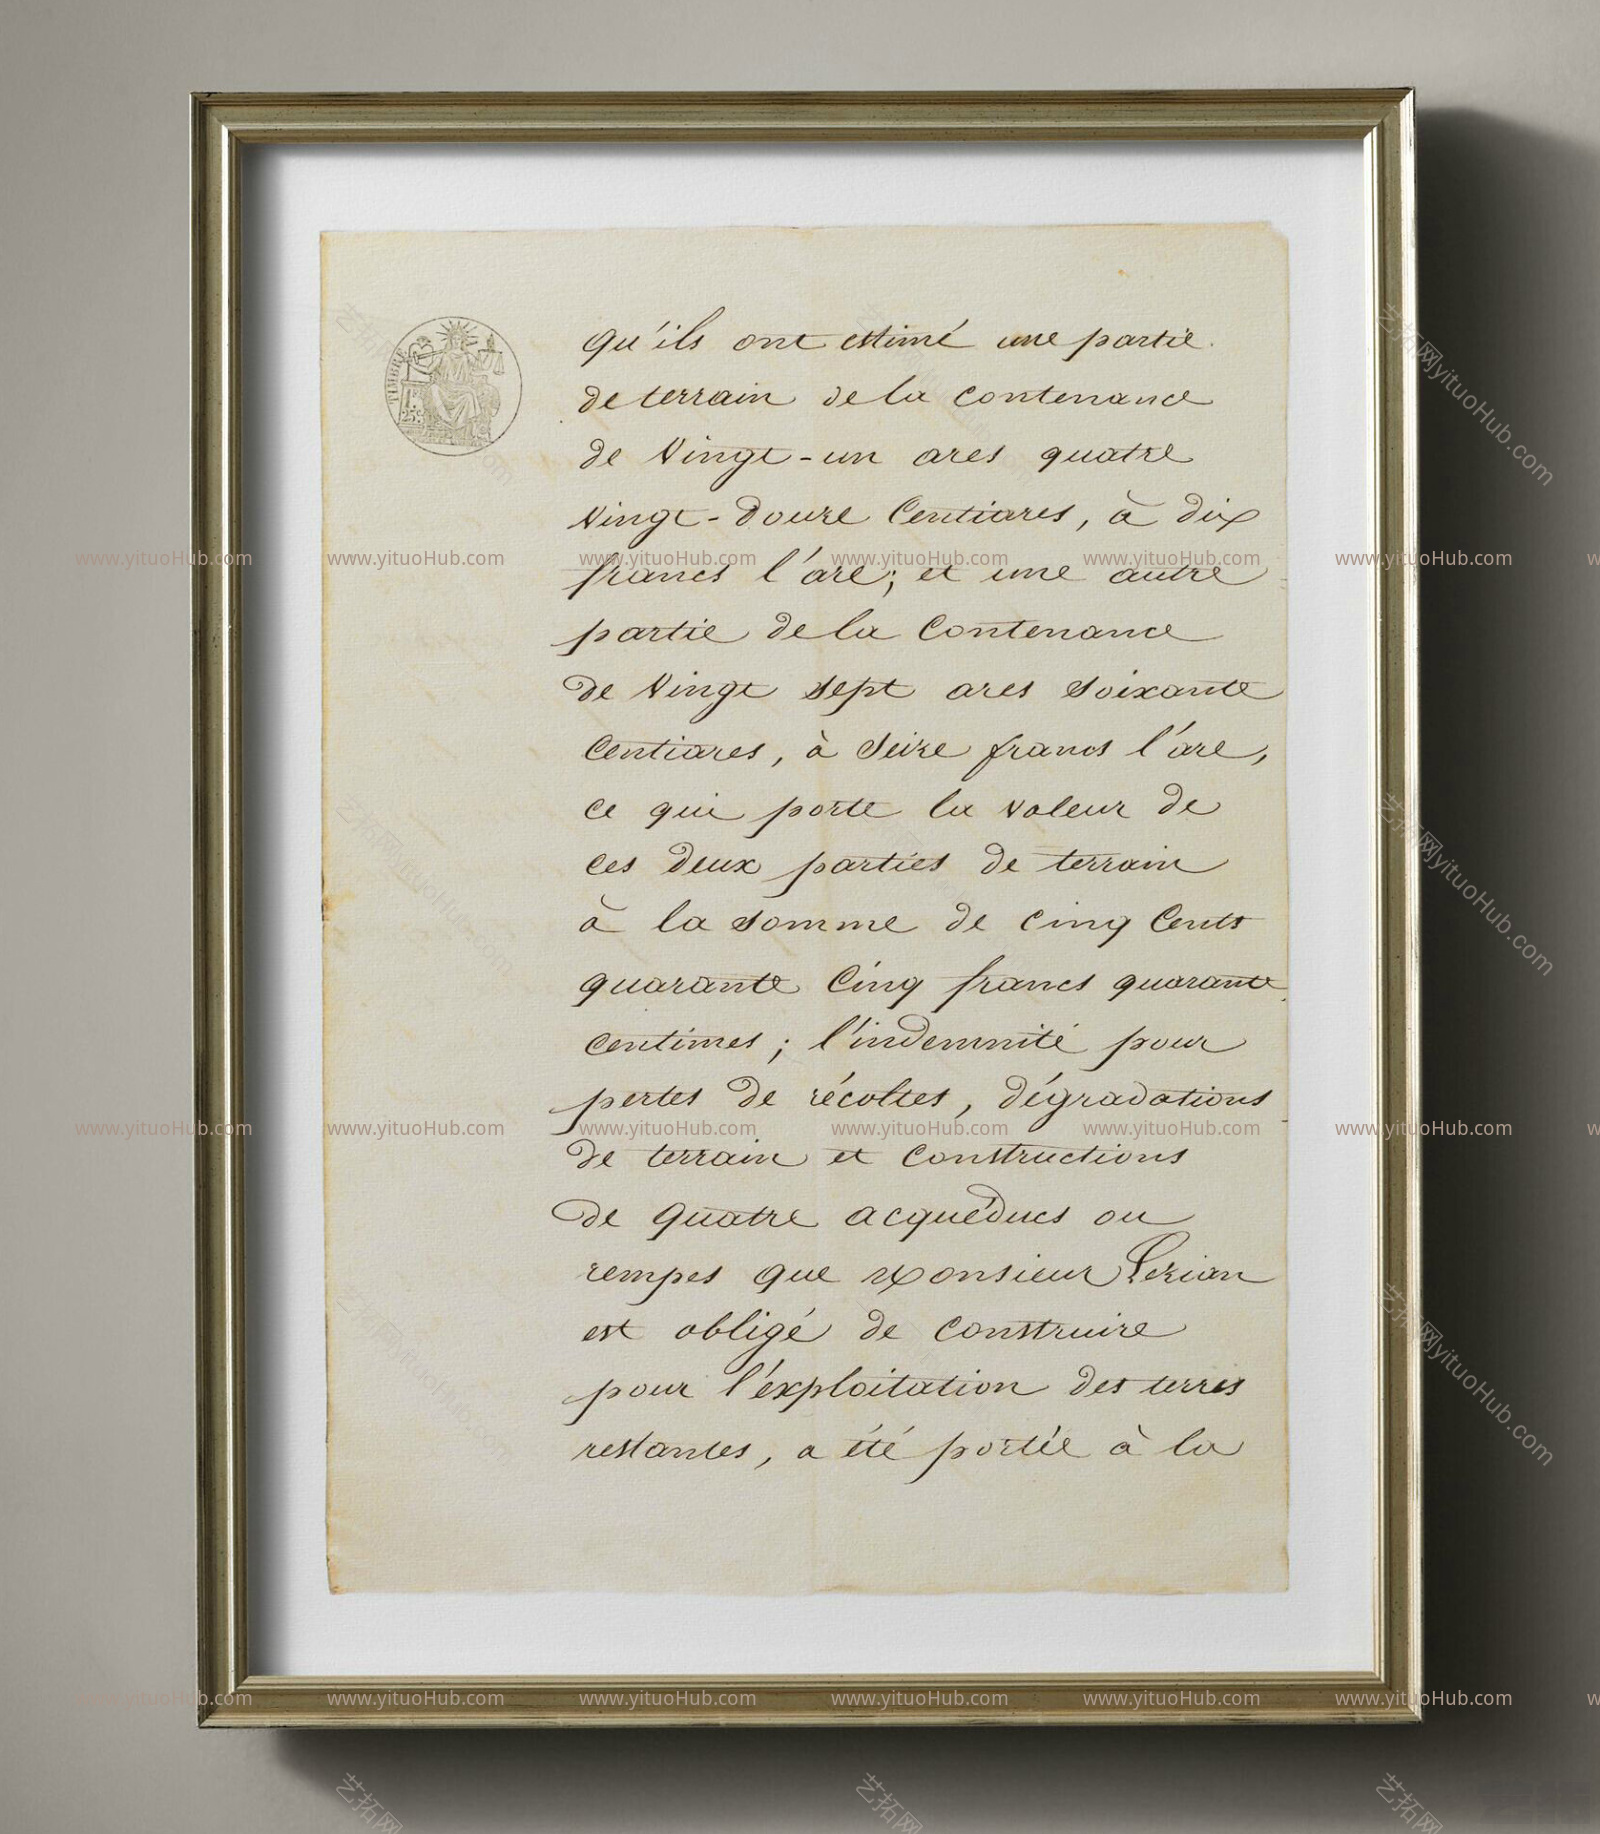 TIMBRE
qu'ils ont estimé une partie
de terrain de la contenance
de Vingt-un ares quatre
Vingt-douze Centiares, à dix
francs l'are; et une autre
partie de la Contenance
de Vingt sept ares Soixante
Centiares, à Seize francs l'are,
ce qui porte la valeur de
ces deux parties de terrain
à la Somme de cinq Cents
quarante Cinq francs quarante
centimes; l'indemnité pour
pertes de récoltes, dégradations
de terrain et constructions
de quatre acquéducs ou
rempes que Monsieur
est obligé de construire
pour l'exploitation des terres
restantes, a été portée à la
www.yituoHub.com www.yituoHub.com www.yituoHub.com www.yituoHub.com www.yituoHub.com www.yituoHub.com
www.yituoHub.com www.yituoHub.com www.yituoHub.com www.yituoHub.com www.yituoHub.com www.yituoHub.com
www.yituoHub.com www.yituoHub.com www.yituoHub.com www.yituoHub.com www.yituoHub.com www.yituoHub.com
艺拓网yituoHub.com
艺拓网yituoHub.com
艺拓网yituoHub.com
艺拓网
艺拓网
艺拓网